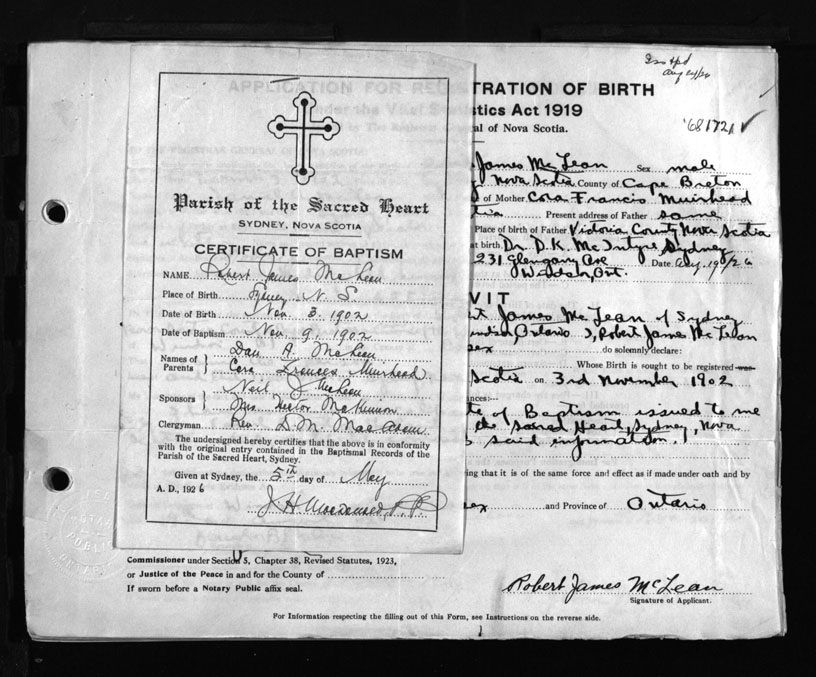 APPLICATION FOR REGISTRATION OF BIRTH
istics Act 1919
al of Nova Scotia.
68172
James McLean Sex male
Nova Scotia County of Cape Breton
of Mother Cora Francis Muirhead
Present address of Father same
Place of birth of Father Victoria County Nova Scotia
at birth Dr. D. K. McIntyre Sydney
231 Glengarry Ave Date Aug. 19/26
Windsor, Ont.
VIT
James McLean of Sydney
Ontario I, Robert James McLean
do solemnly declare:
Whose Birth is sought to be registered was
Scotia on 3rd November 1902
ances:—
of Baptism issued to me
the Sacred Heart, Sydney, Nova
said information.
ing that it is of the same force and effect as if made under oath and by
and Province of Ontario
Parish of the Sacred Heart
SYDNEY, NOVA SCOTIA
CERTIFICATE OF BAPTISM
NAME Robert James McLean
Place of Birth N. S.
Date of Birth Nov. 3. 1902
Date of Baptism Nov 9. 1902
Names of Parents } Dan A. McLean
Cora Frances Muirhead
Sponsors } Neil J McLean
Mrs Hector McKinnon
Clergyman Rev. D. M. MacAdam
The undersigned hereby certifies that the above is in conformity
with the original entry contained in the Baptismal Records of the
Parish of the Sacred Heart, Sydney.
Given at Sydney, the 5th day of May
A. D., 1926
J. H. Macdonald, P. P.
Commissioner under Section 5, Chapter 38, Revised Statutes, 1923,
or Justice of the Peace in and for the County of
If sworn before a Notary Public affix seal.
Robert James McLean
Signature of Applicant.
For Information respecting the filling out of this Form, see Instructions on the reverse side.